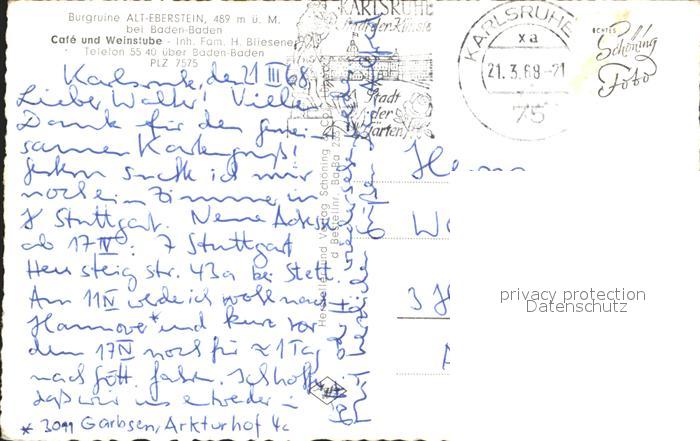 Burgruine ALT-EBERSTEIN, 489 m ü. M.
bei Baden-Baden
Café und Weinstube - Inh. Fam. H. Bliesener
Telefon 55 40 über Baden-Baden
PLZ 7575
KARLSRUHE
Stadt der Künste
Stadt
der
Gärten
KARLSRUHE
xa
21.3.68-21
75
ECHTES
Schöning
Foto
Karlsruhe, den 21 III 68
Lieber Walter! Vielen
Dank für den gemein-
samen Kartengruß!
Gestern suchte ich mir
noch ein Zimmer in
7 Stuttgart. Neue Adresse
ab 17 IV: 7 Stuttgart
Heusteigstr. 43a bei Stett.
Am 11 IV werde ich wohl nach
Hannover* und kurz vor
dem 17 IV noch für ≈ 1 Tag
nach Gött. fahren. Ich hoffe,
daß wir uns entweder in
* 3011 Garbsen, Arkturhof 4c
Schöning
Herrn
W
3
privacy protection
Datenschutz